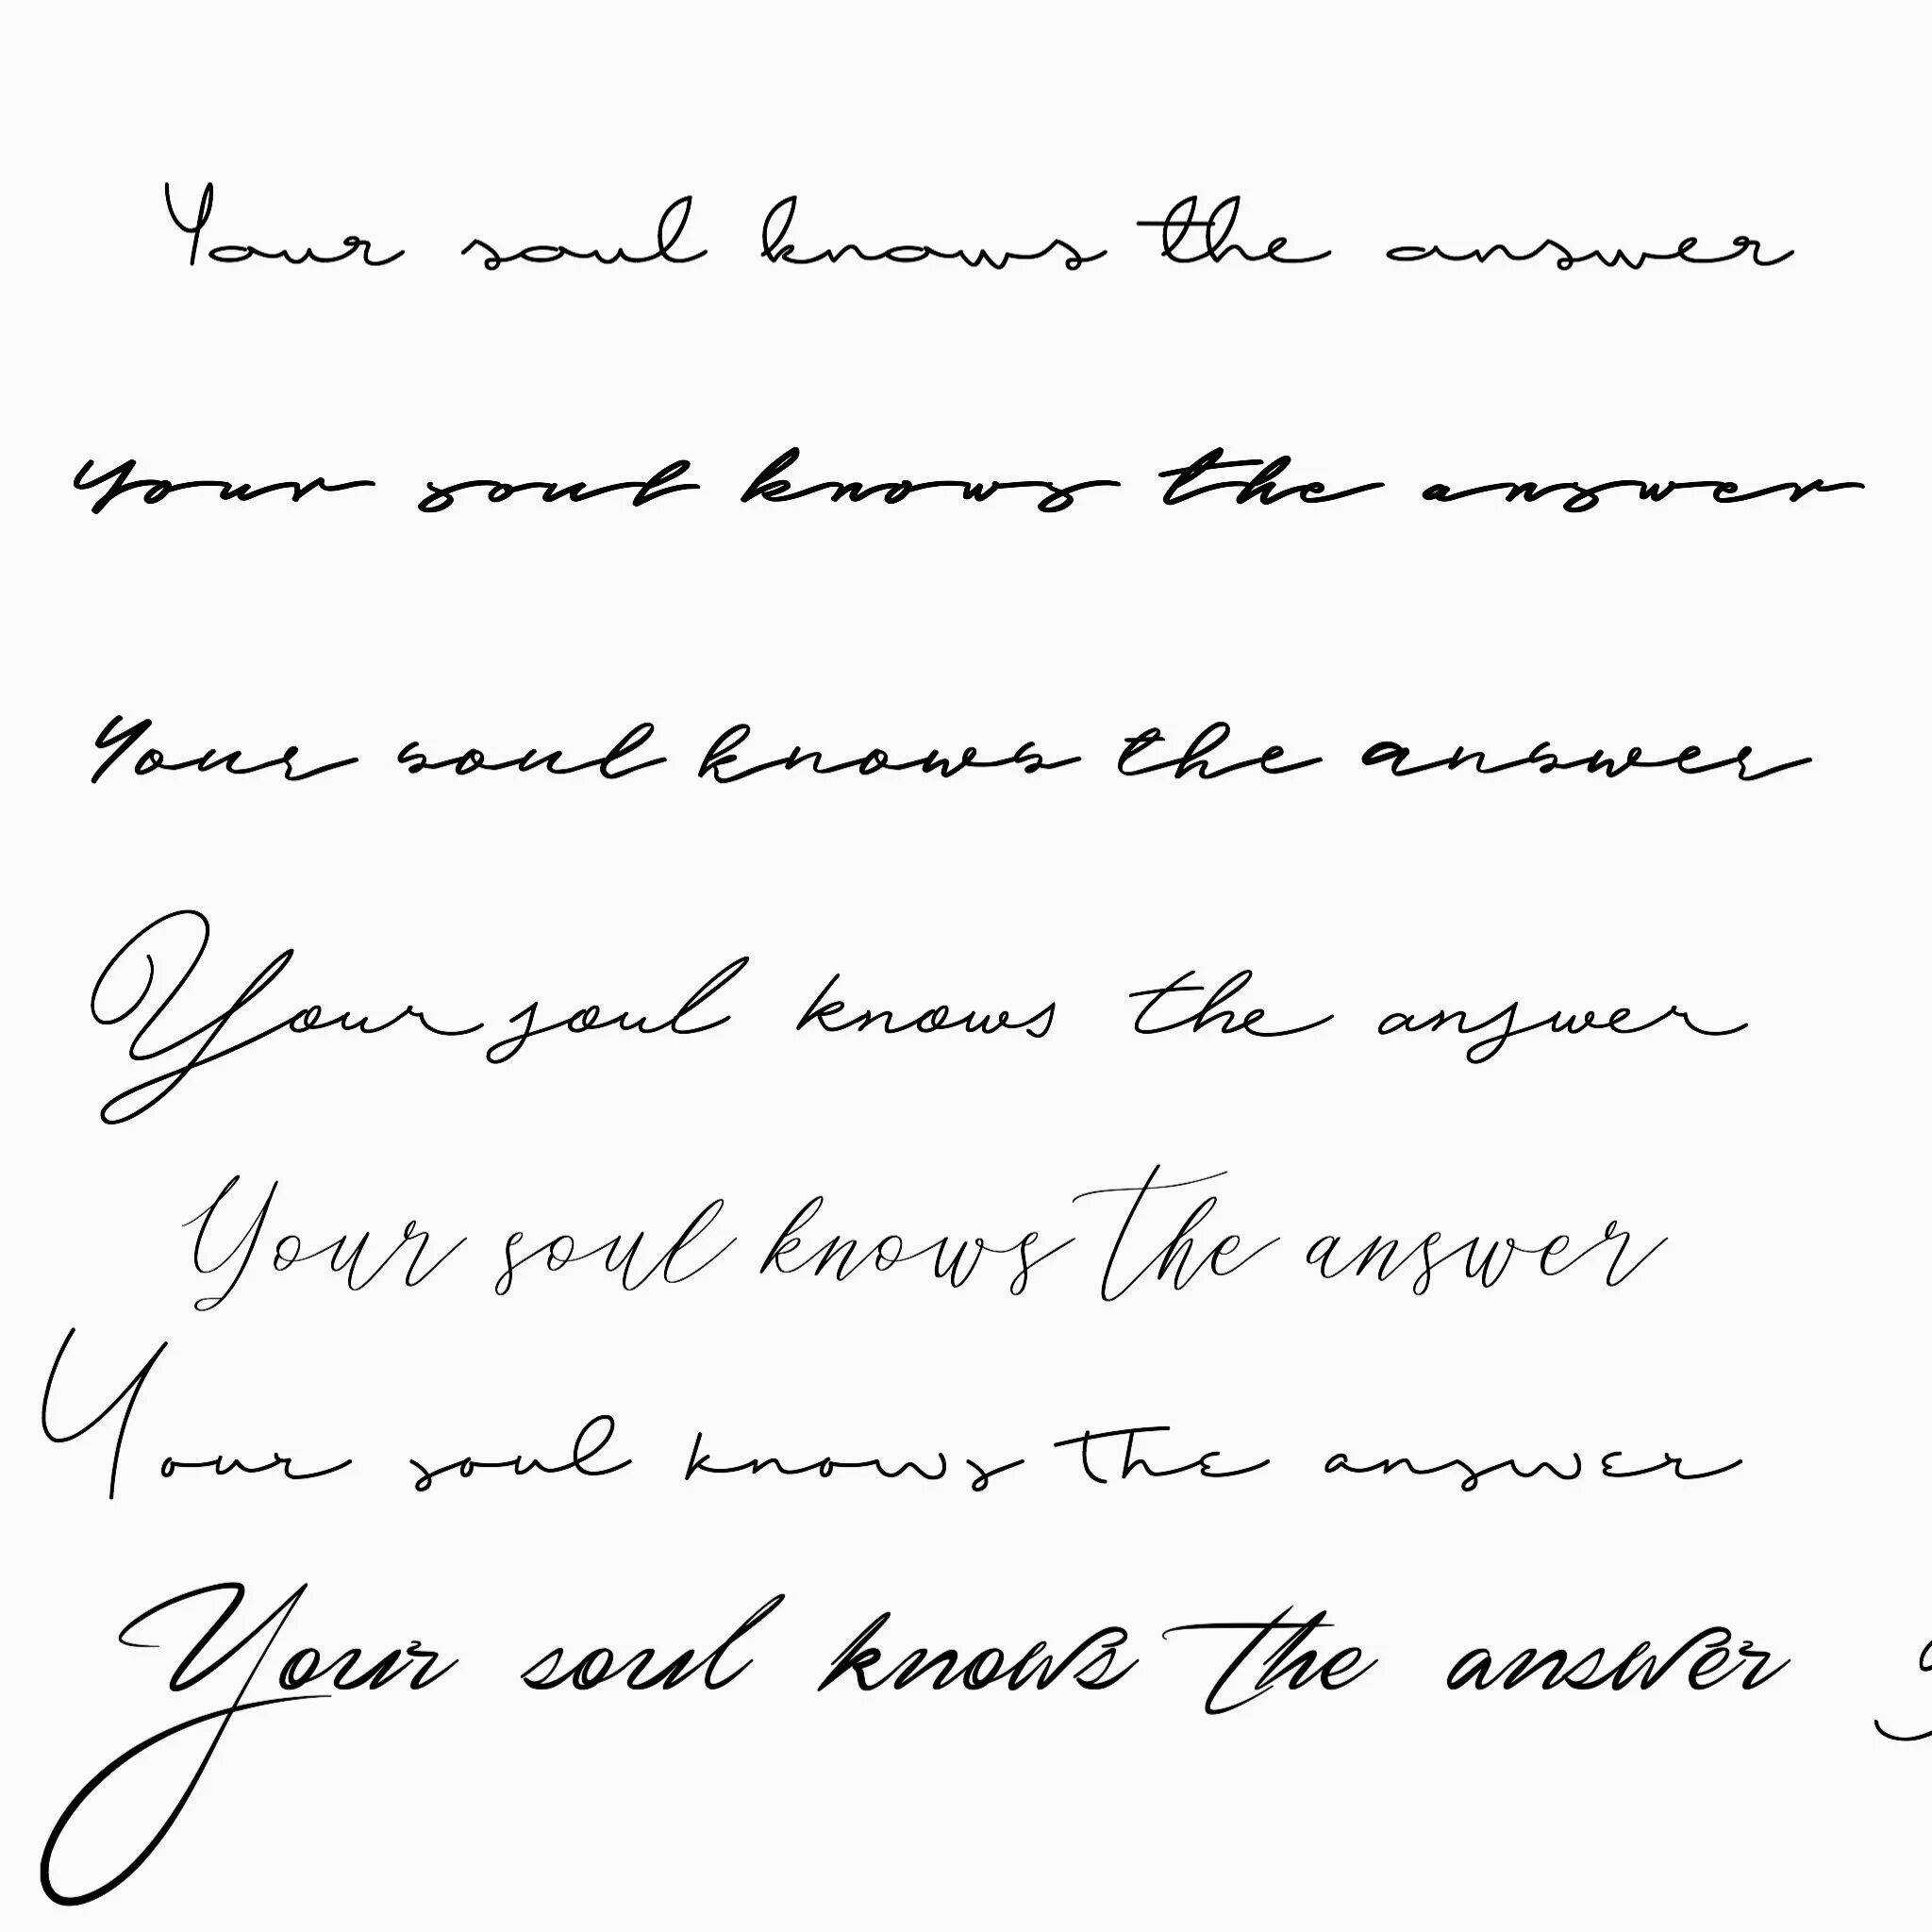 Your soul knows the answer
Your soul knows the answer
Your soul knows the answer
Your soul knows the answer
Your soul knows the answer
Your soul knows the answer
Your soul knows the answer